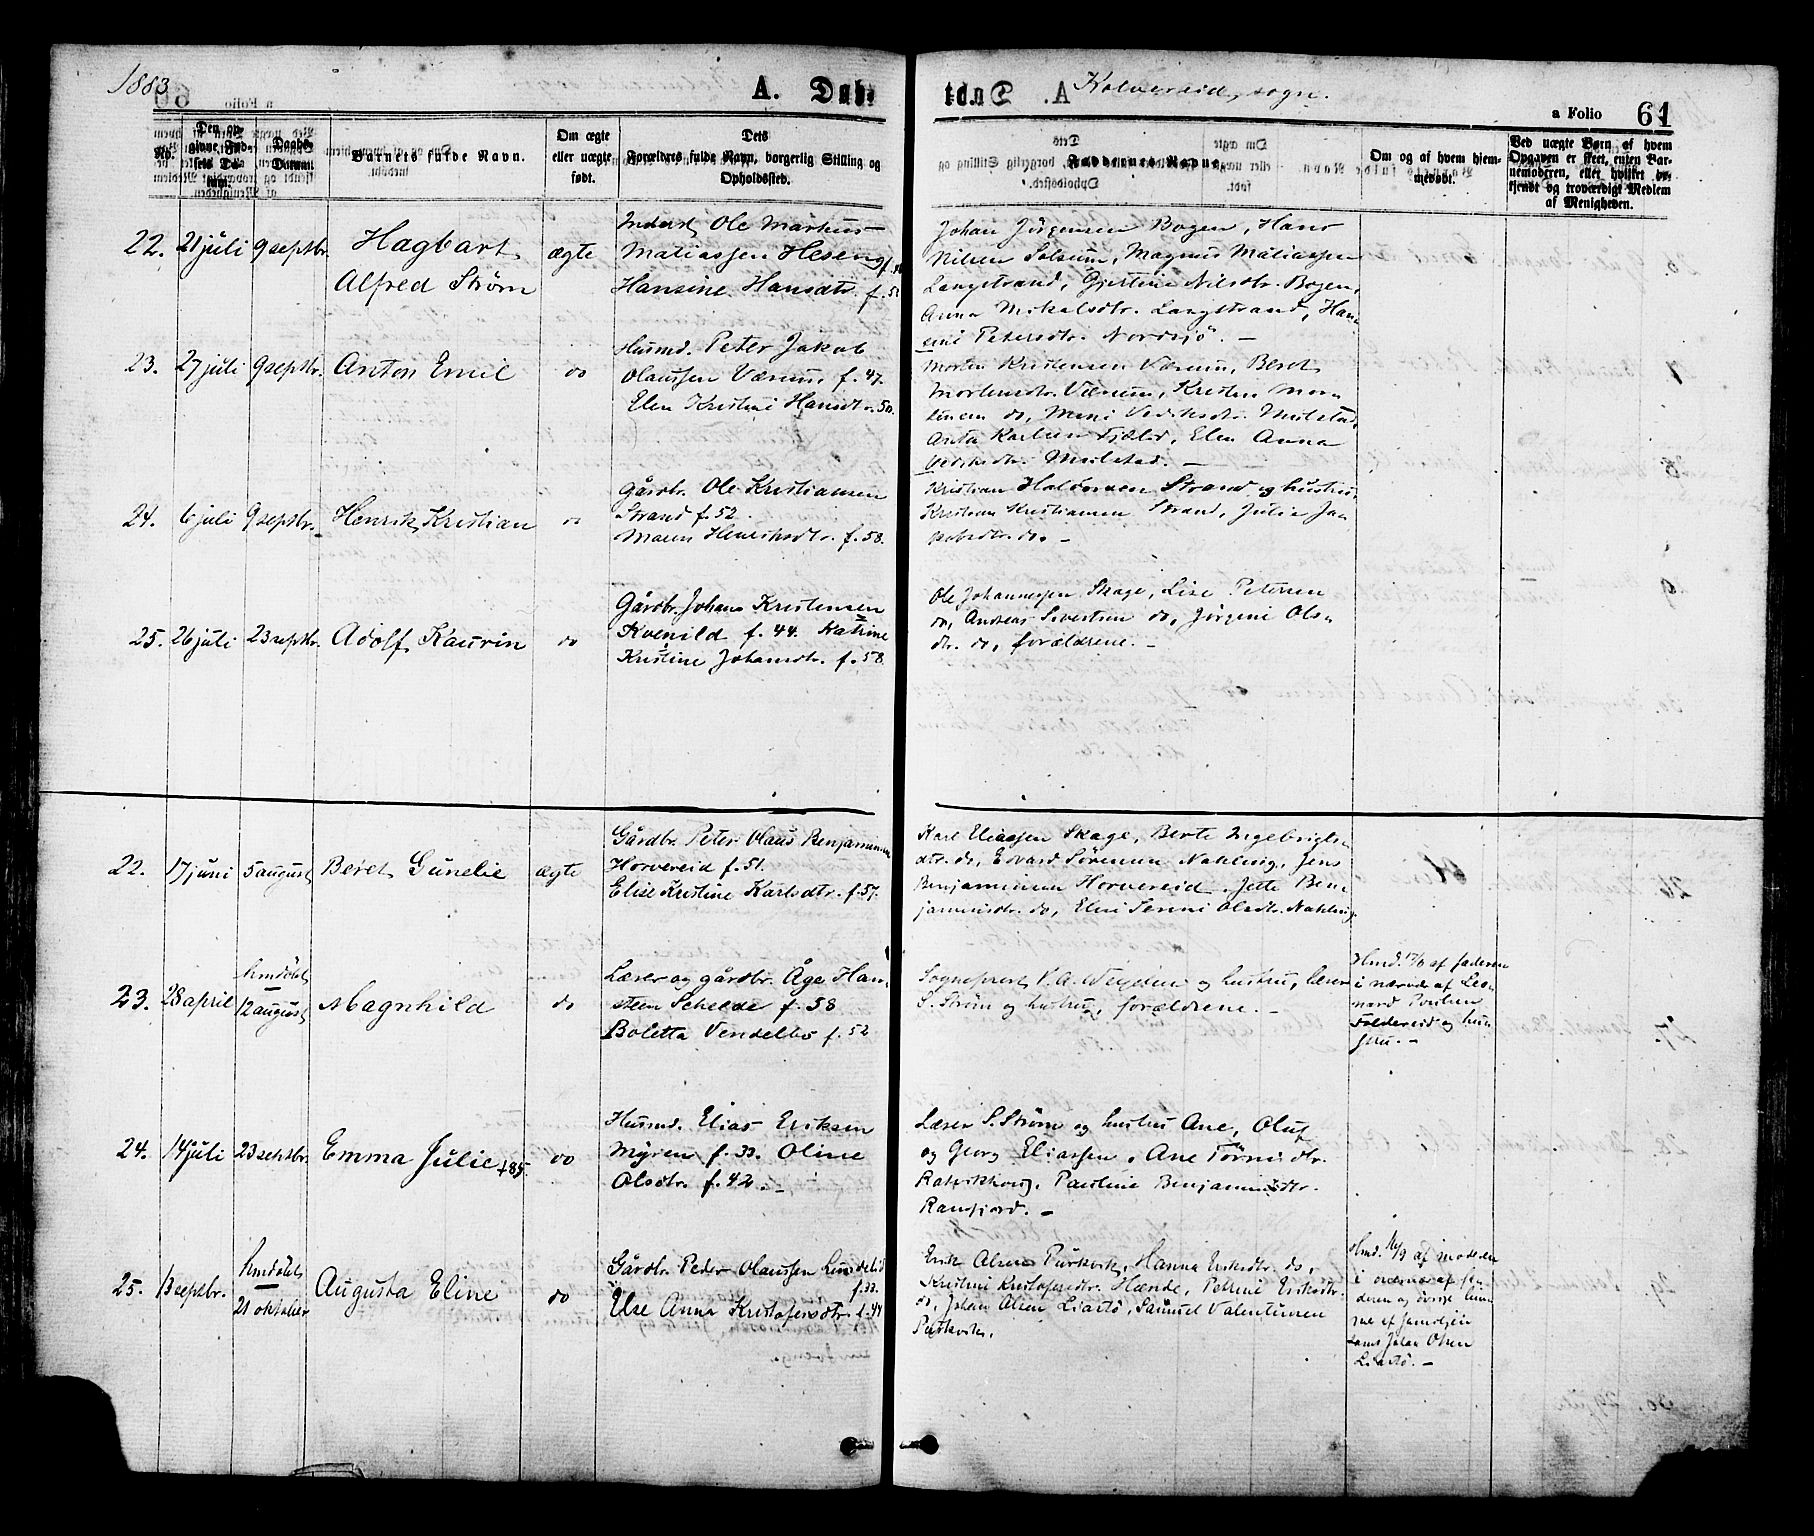 1883
A. Døbt.
Kolvereid sogn.
a Folio 61
No.
Den opgivne Fødsels Datum.
Daabs-Datum
Barnets fulde Navn.
Om ægte eller uægte født.
Dets Forældres fulde Navn, borgerlig Stilling og Opholdssted.
Faddernes Navne
Om og af hvem hjemmedøbt.
Ved uægte Børn af hvem Opgaven er skeet, enten Barnemoderen, eller hvilket bekjendt og troværdigt Medlem af Menigheden.
22. 21 juli 9 septbr. Hagbart Alfred Strøm ægte
Inderst Ole Markus
Matiassen Heseng
Hansine Hansdtr.
Johan Jörgensen Bogen, Hans
Nilsen Solsum, Magnus Matiassen
Langstrand, Gjertine Nilsdtr. Bogen,
Anna Mikalsdtr. Langstrand, Han
Petersdtr. Nordsjö. —
23. 27 juli 9 septbr. Anton Emil do
Husmd. Peter Jakob
Olaussen Værum, f. 47.
Elen Kristine Hansdtr. 50.
Morten Kristensen Værum, Beret
Mortensdtr. Værum, Kristen Mor
Elen Anna
24. 6 juli 9 septbr. Henrik Kristian do
Gårdbr. Ole Kristiansen
Strand f. 52.
Maren Henriksdtr. f. 58.
Kristian Haldorsen Strand og hustru,
Kristian Kristiansen Strand, Julie Ja
kobsdtr. do. —
25. 26 juli 23 septbr. Adolf Kaurin do
Gårdbr. Johan Kristensen
Kvenild f. 44. Katrine
Kristine Johansdtr. f. 58.
Ole Johannessen Skage, Lise Petersen
do, Andreas Sivertsen do, Jörgine Ols
dtr. do, forældrene. —
22. 17 juni 5 august Beret Gunelie ægte
Gårdbr. Peter Olaus Benjaminsen
Horvereid f. 51.
Elise Kristine Karlsdtr. f. 57.
Karl Eliassen Skage, Berte Ingebrigts
dtr. do, Edvard Sørensen Jens
Benjaminsen Horvereid, Jette Ben
jaminsdtr. do, Olsdtr.
23. 28 april hmdöbt — 12 august Magnhild do
Lærer og gårdbr. Åge Han
steen Schelde f. 58
Boletta Vendelbo f. 52
Sogneprest og hustru, lærer
S. Strøm og hustru, forældrene. —
Hmd. af faderen
i nærvær af Leo
nard Poulsen
Foldereid og hus
tru. —
24. 14 juli 23 septbr. Emma Julie +85. do
Husmd. Elias Eriksen
Myren f. 33. Oline
Olsdtr. f. 42. —
Lærer S. Strøm og hustru Ane, Oluf
og Georg Eliassen, Ane
Pauline Benjaminsdtr.
Ranfjord. —
25. 13 septbr. hmdöbt — 21 oktober Augusta Eline do
Gårdbr. Peder Olaussen f. 33.
Else Anna Kristofersdtr. f. 44
Erik Alsen Purkvik, Hanna Eriksdtr. do,
Kristine Kristofersdtr. Hænde, Petrine Eriksdtr.
do, Johan Alsen Liasö, Samuel Valentinsen
Purkvik.
Hmd. 16/9 af moderen
i overvær af fa
deren og övrige
af familjen
samt Johan Olsen
Liasö. —